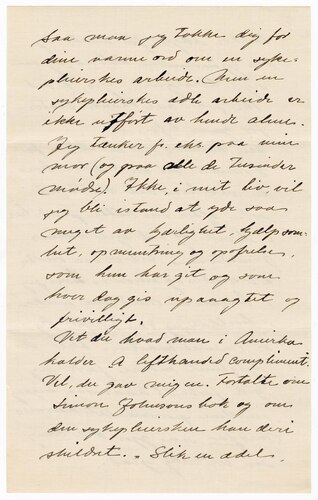 Saa maa jeg takke dig for
dine varme ord om en syke-
pleierskes arbeide. Men en
sykepleierskes ædle arbeide er
ikke utført av hende alene.
Jeg tænker f. eks. paa min
mor (og paa alle de tusinder
mødre). Ikke i mit liv vil
jeg bli istand at yde saa
meget av kjærlighet, hjælpsom-
het, opmuntring og opofrelse,
som hun har git og som
hver dag gis upaaagtet og
frivilligt.
Vet du hvad man i Amerika
kalder A lefthanded compliment.
Vel, du gav mig en. Fortalte om
Simon Johnsons bok og om
den sykepleierske han deri
skildret. - Slik en ædel,